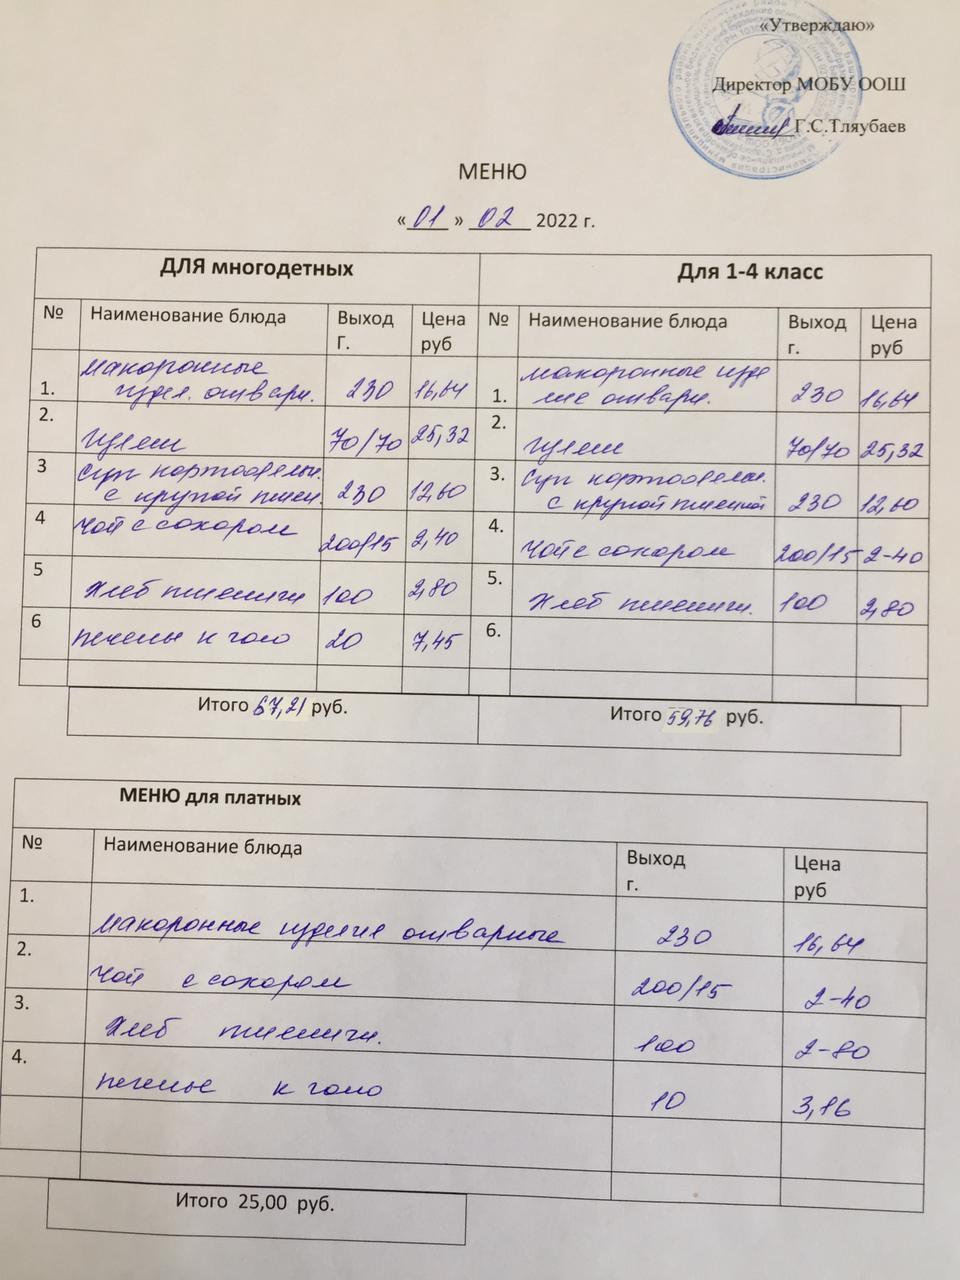 «Утверждаю»
Директор МОБУ ООШ
Г.С.Тляубаев
МЕНЮ
«01» 02 2022 г.
ДЛЯ многодетных
№ Наименование блюда Выход г. Цена руб
1. Макоронные издел. отварн. 230 16,64
2. гуляш 70/70 25,32
3 Суп картофельн. с крупой пшен. 230 12,60
4 Чай с сахаром 200/15 2,40
5 Хлеб пшеничн 100 2,80
6 печенье к чаю 20 7,45
Итого 67,21 руб.
Для 1-4 класс
№ Наименование блюда Выход г. Цена руб
1. Макоронные изде лие отварн. 230 16,64
2. гуляш 70/70 25,32
3. Суп картофельн. с крупой пшенной 230 12,60
4. Чай с сахаром 200/15 2-40
5. Хлеб пшеничн. 100 2,80
6.
Итого 59,76 руб.
МЕНЮ для платных
№ Наименование блюда Выход г. Цена руб
1. Макоронные изделия отварные 230 16,64
2. Чай с сахаром 200/15 2-40
3. Хлеб пшеничн. 100 2-80
4. печенье к чаю 10 3,16
Итого 25,00 руб.